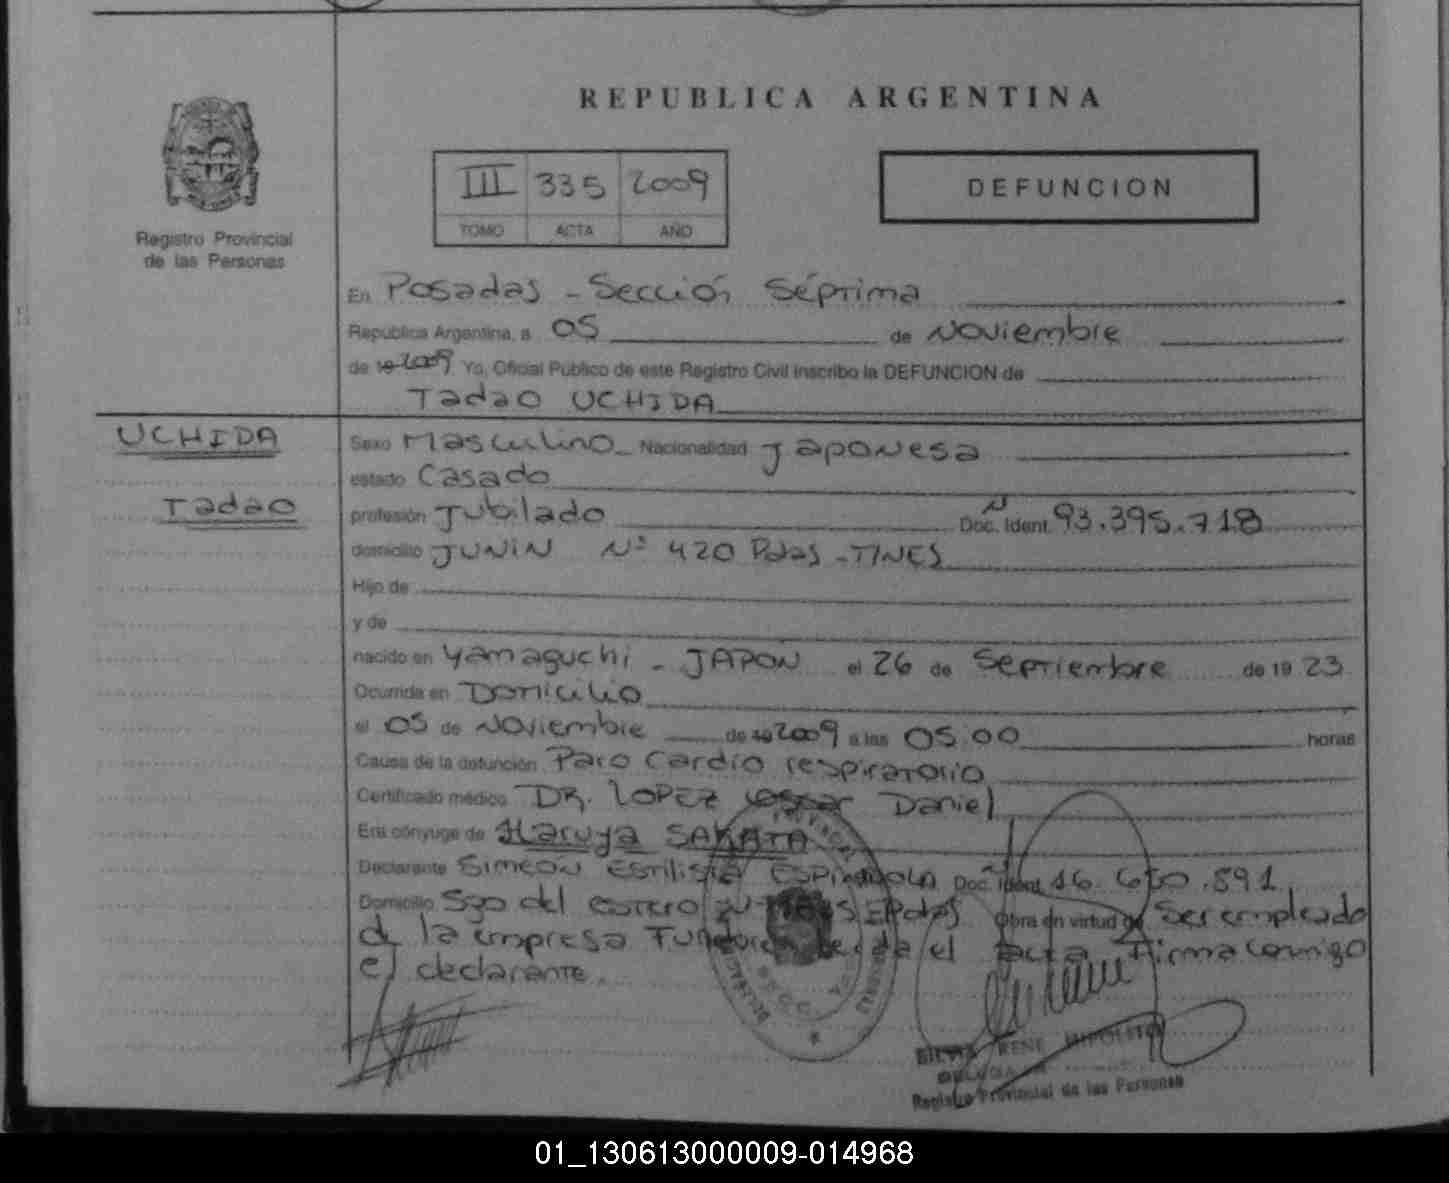 REPUBLICA ARGENTINA
III 335 2009
TOMO ACTA AÑO
DEFUNCION
Registro Provincial
de las Personas
En Posadas - Sección Séptima
República Argentina, a 05 de Noviembre
de 19 2009 Yo, Oficial Público de este Registro Civil inscribo la DEFUNCION de
Tadao UCHIDA
UCHIDA
Tadao
Sexo Masculino - Nacionalidad Japonesa
estado Casado
profesión Jubilado Doc. Ident. N 93.395.718
domicilio JUNIN Nº 420 Pdas -
Hijo de
y de
nacido en Yamaguchi - JAPON el 26 de Septiembre de 19 23
Ocurrida en Domicilio
el 05 de Noviembre de 19 2009 a las 05:00 horas
Causa de la defunción Paro Cardio respiratorio
Certificado médico DR. LOPEZ Oscar Daniel
Era cónyuge de Haruya SAKATA
Declarante Simeón ESPINDOLA Doc. Ident. 16.650.891
Domicilio Sgo del estero Pdas Obra en virtud de Ser empleado
de la empresa el acta Firma Conmigo
el declarante.
SILVIA RENE HIPOLITO
Registro Provincial de las Personas
01_130613000009-014968